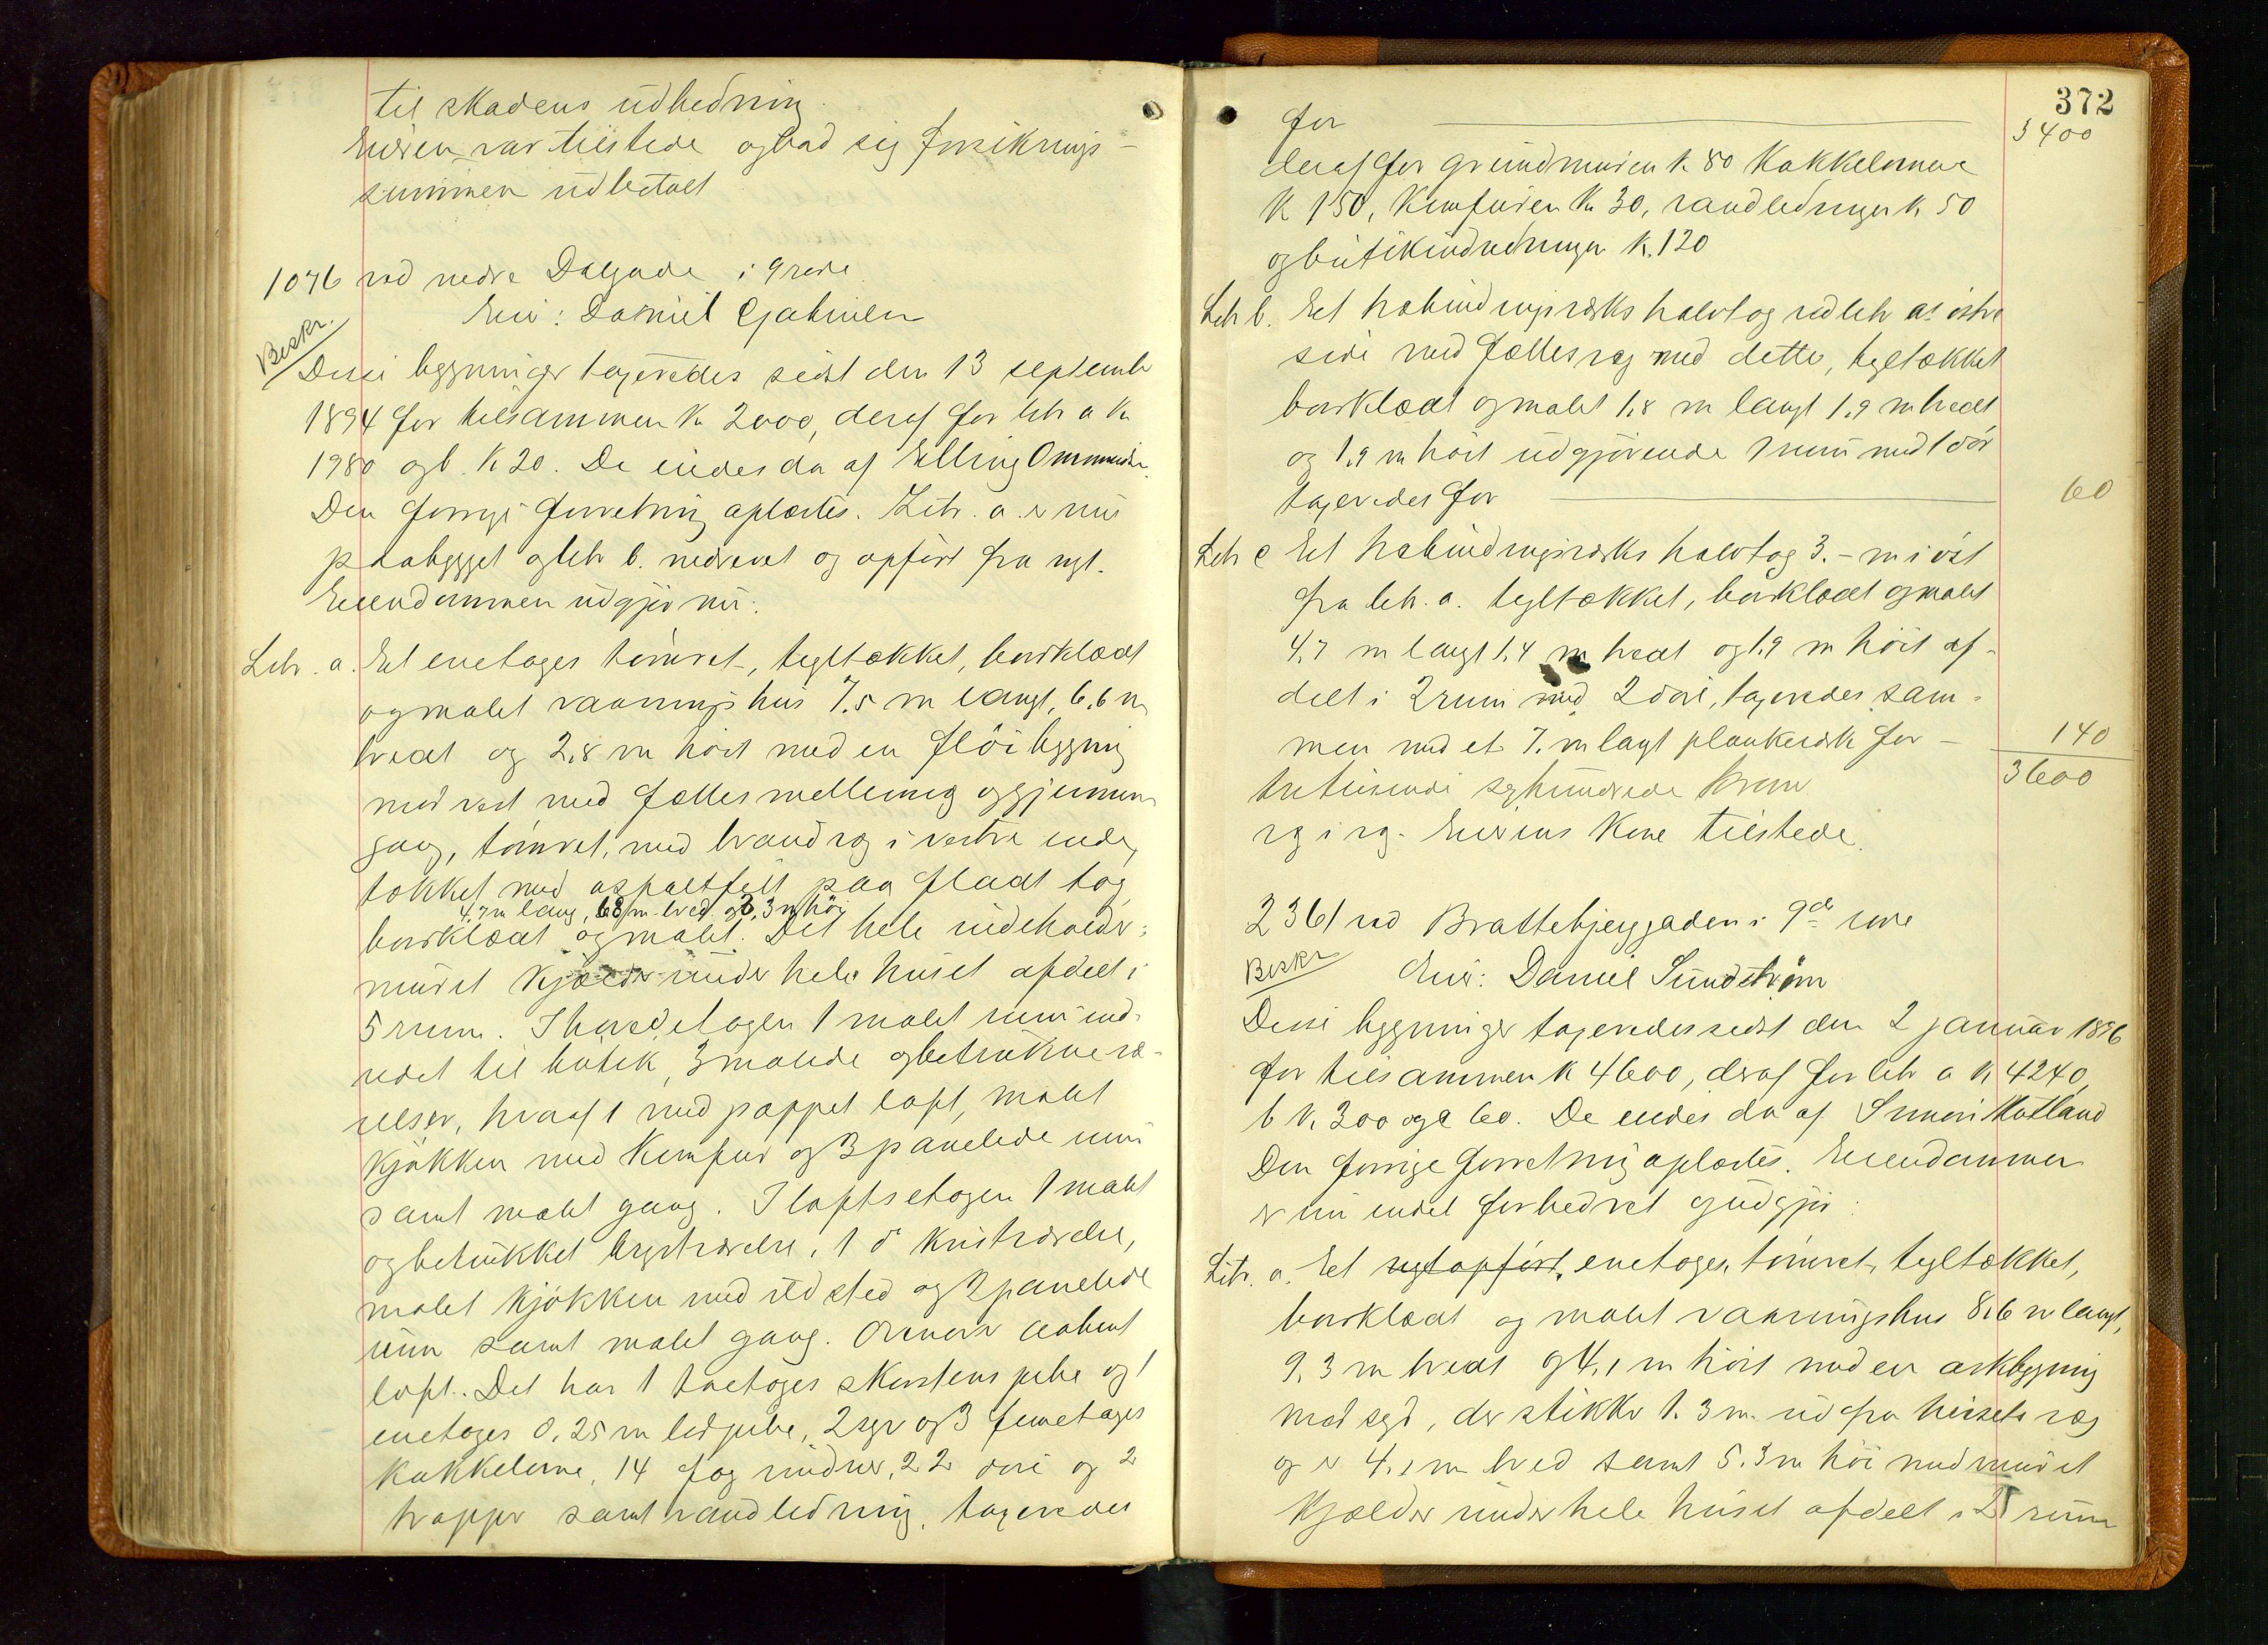 til skadens udbedring
Eieren var tilstede og bad sig forsikrings-
summen udbetalt
1076 ved nedre Dalgade i 9 rode
Eier: Daniel Gabrielsen
Beskr.
Disse bygninger taxeredes sidst den 13 septembr
1894 for tilsammen Kr 2000, deraf for litr a Kr
1980 og b. K 20. De eiedes da af Elling Ommundsen.
Den forrige forretning oplæstes. Litr. a. er nu
paabygget og litr b. nedrevet og opført fra nyt.
Eiendommen udgjør nu:
Litr. a. Et enetages tømret, tegltækket, bordklædt
og malet vaaningshus 7.5 m langt, 6.6 m
bredt og 2.8 m høit med en fløibygning
mod vest med fælles mellemvæg og gjennem
gang, tømret, med brandvæg i vestre ende,
tækket med asphaltfilt paa fladt tag,
4.7 m lang, 6.8 m bred og 3.3 m høi
bordklædt og malet. Det hele indeholder:
muret kjælder under hele huset afdelt i
5 rum. I hovedetagen 1 malet rum ind-
redet til butik, 3 malede og betrukne væ-
relser, hvoraf 1 med pappet loft, malet
kjøkken med komfur og 3 panelede rum
samt malet gang. I loftsetagen 1 malet
og betrukket kvistværelse, 1 do kvistværelse,
malet kjøkken med ildsted og 2 panelede
rum samt malet gang. Ovenover aabent
loft. Det har 1 toetages skorstenspibe og 1
enetages 0.25 m ledpibe, 2 syv og 3 femetages
kakkelovne, 14 fag vinduer, 22 døre og 2
trapper samt vandledning, taxeredes
372
for 3400
deraf for grundmuren k 80 kakkelovnene
K 150, komfuren Kr 30, vandledningen k 50
og butikindredningen K. 120
Litr b. Et halvbindingsverks halvtag ved litr as østre
side med fælles væg med dette, tegltækket
bordklædt og malet 1.8 m langt 1.9 m bredt
og 1.9 m høit udgjørende 1 rum med 1 dør
taxeredes for 60
Litr c Et halvbindingsverks halvtag 3.- m i øst
fra litr. a. tegltækket, bordklædt og malet
4.7 m langt 1.4 m bredt og 1.9 m høit af-
delt i 2 rum med 2 døre, taxeredes sam-
men med et 7. m langt plankeværk for - 140
3600
tretusinde sexhundrede kroner
rg i rg. Eierens kone tilstede.
2361 ved Brattebjerggaden i 9de rode
Beskr
Eier: Daniel Sundstrøm
Disse bygninger taxeredes sidst den 2 januar 1896
for tilsammen k 4600, deraf for litr a K 4240,
b K. 300 og c 60. De eiedes da af Simon Hatland
Den forrige forretning oplæstes. Eiendommen
er nu endel forbedret og udgjør:
Litr. a. Et nyt opført, enetages, tømret, tegltækket,
bordklædt og malet vaaningshus 8.6 m langt,
9.3 m bredt og 4.1 m høit med en arkbygning
mod syd, der stikker 1.3 m. ud fra husets væg
og er 4.1 m bred samt 5.3 m høi med muret
kjælder under hele huset afdelt i 2 rum